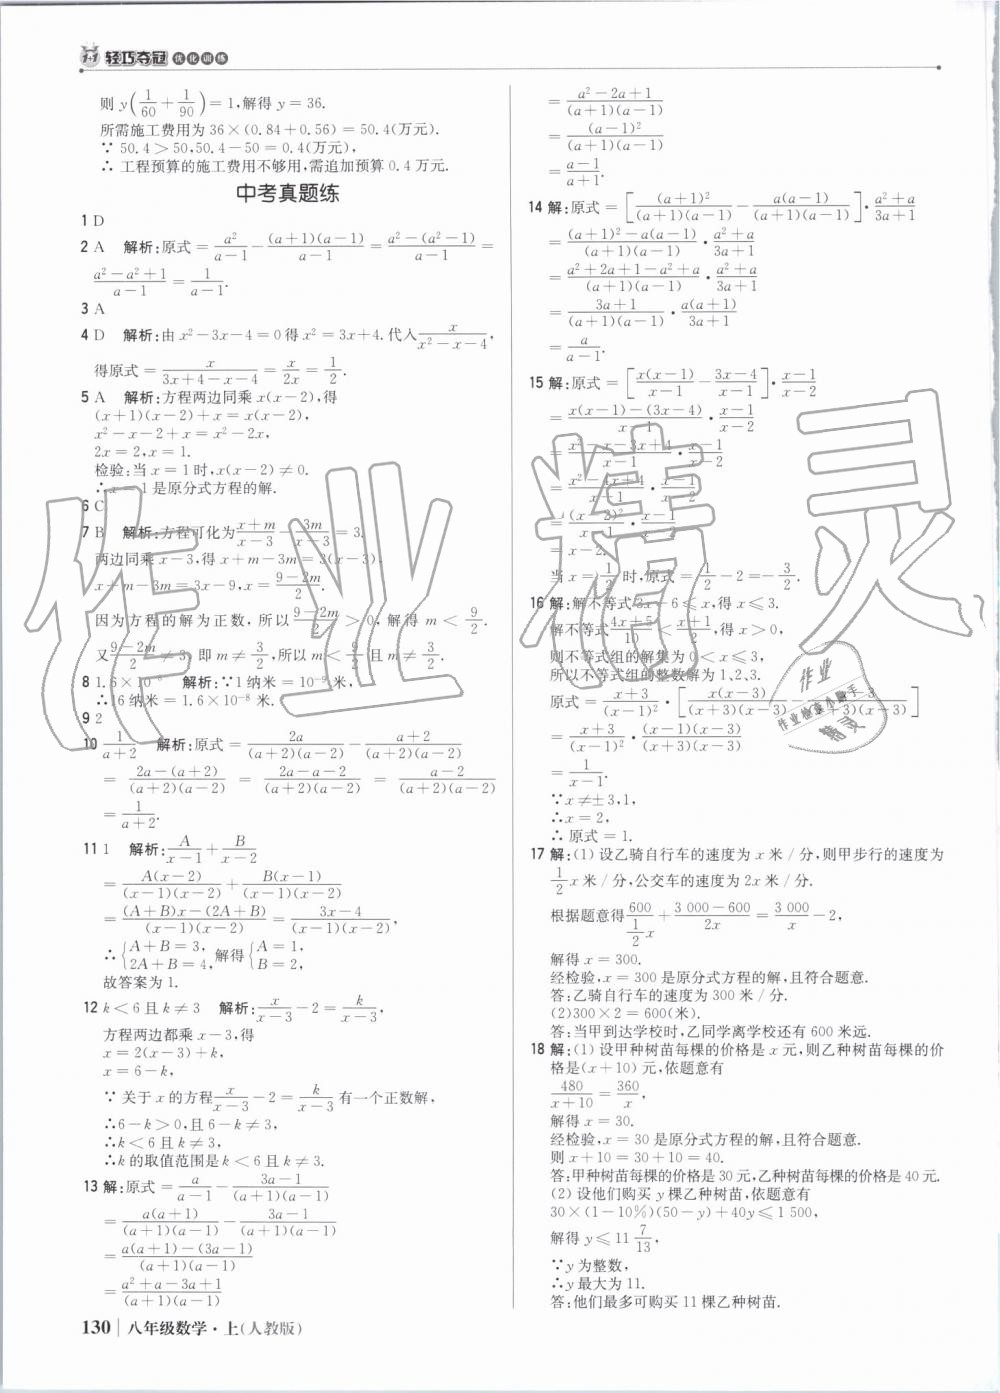 1+1 轻巧夺冠 优化训练
则 y(1/60 + 1/90) = 1,解得 y = 36.
所需施工费用为 36×(0.84+0.56) = 50.4(万元).
∵ 50.4>50,50.4-50 = 0.4(万元),
∴ 工程预算的施工费用不够用,需追加预算 0.4 万元.
中考真题练
1 D
2 A 解析:原式 = a²/(a-1) - (a+1)(a-1)/(a-1) = (a²-(a²-1))/(a-1) =
(a²-a²+1)/(a-1) = 1/(a-1).
3 A
4 D 解析:由 x²-3x-4 = 0 得 x² = 3x+4. 代入 x/(x²-x-4),
得原式 = x/(3x+4-x-4) = x/2x = 1/2.
5 A 解析:方程两边同乘 x(x-2),得
(x+1)(x-2)+x = x(x-2),
x²-x-2+x = x²-2x,
2x = 2,x = 1.
检验:当 x = 1 时,x(x-2) ≠ 0.
∴ x = 1 是原分式方程的解.
6 C
7 B 解析:方程可化为 (x+m)/(x-3) - 3m/(x-3) = 3.
两边同乘 x-3,得 x+m-3m = 3(x-3),
x+m-3m = 3x-9,x = (9-2m)/2.
因为方程的解为正数, 所以 (9-2m)/2 > 0, 解得 m < 9/2.
又 (9-2m)/2 ≠ 3, 即 m ≠ 3/2,所以 m < 9/2 且 m ≠ 3/2.
8 1.6×10⁻⁸ 解析:∵1 纳米 = 10⁻⁹ 米,
∴ 16 纳米 = 1.6×10⁻⁸ 米.
9 2
10 1/(a+2) 解析:原式 = 2a/((a+2)(a-2)) - (a+2)/((a+2)(a-2))
= (2a-(a+2))/((a+2)(a-2)) = (2a-a-2)/((a+2)(a-2)) = (a-2)/((a+2)(a-2))
= 1/(a+2).
11 1 解析: A/(x-1) + B/(x-2)
= A(x-2)/((x-1)(x-2)) + B(x-1)/((x-1)(x-2))
= ((A+B)x-(2A+B))/((x-1)(x-2)) = (3x-4)/((x-1)(x-2)),
∴ {A+B = 3, 2A+B = 4, 解得 {A = 1, B = 2,
故答案为 1.
12 k<6 且 k≠3 解析: x/(x-3) - 2 = k/(x-3),
方程两边都乘 x-3,得
x = 2(x-3)+k,
x = 6-k,
∵ 关于 x 的方程 x/(x-3) - 2 = k/(x-3) 有一个正数解,
∴6-k>0,且 6-k ≠ 3,
∴k<6 且 k ≠ 3,
∴k 的取值范围是 k<6 且 k ≠ 3.
13 解:原式 = a/(a-1) - (3a-1)/((a+1)(a-1))
= a(a+1)/((a+1)(a-1)) - (3a-1)/((a+1)(a-1))
= (a(a+1)-(3a-1))/((a+1)(a-1))
= (a²+a-3a+1)/((a+1)(a-1))
= (a²-2a+1)/((a+1)(a-1))
= (a-1)²/((a+1)(a-1))
= (a-1)/(a+1).
14 解:原式 = [(a+1)²/((a+1)(a-1)) - a(a-1)/((a+1)(a-1))]·(a²+a)/(3a+1)
= ((a+1)²-a(a-1))/((a+1)(a-1)) · (a²+a)/(3a+1)
= (a²+2a+1-a²+a)/((a+1)(a-1)) · (a²+a)/(3a+1)
= (3a+1)/((a+1)(a-1)) · a(a+1)/(3a+1)
= a/(a-1).
15 解:原式 = [x(x-1)/(x-1) - (3x-4)/(x-1)]·(x-1)/(x-2)
= (x(x-1)-(3x-4))/(x-1) · (x-1)/(x-2)
= (x²-x-3x+4)/(x-1) · (x-1)/(x-2)
= (x²-4x+4)/(x-1) · (x-1)/(x-2)
= (x-2)²/(x-1) · (x-1)/(x-2)
= x-2.
当 x = 1/2 时,原式 = 1/2 - 2 = -3/2.
16 解:解不等式 3x-6 ≤ x,得 x ≤ 3.
解不等式 (4x+5)/10 < (x+1)/2,得 x > 0,
则不等式组的解集为 0 < x ≤ 3,
所以不等式组的整数解为 1,2,3.
原式 = (x+3)/(x-1)² · [x(x-3)/((x+3)(x-3)) - (x-3)/((x+3)(x-3))]
= (x+3)/(x-1)² · (x-1)(x-3)/((x+3)(x-3))
= 1/(x-1).
∵x ≠ ±3,1,
∴x = 2,
∴ 原式 = 1.
17 解:(1) 设乙骑自行车的速度为 x 米/分,则甲步行的速度为
1/2 x 米/分,公交车的速度为 2x 米/分.
根据题意得 600/(1/2 x) + (3 000-600)/2x = 3 000/x - 2,
解得 x = 300.
经检验,x = 300 是原分式方程的解,且符合题意.
答:乙骑自行车的速度为 300 米/分.
(2)300×2 = 600(米).
答:当甲到达学校时,乙同学离学校还有 600 米远.
18 解:(1) 设甲种树苗每棵的价格是 x 元,则乙种树苗每棵的价
格是(x+10) 元,依题意有
480/(x+10) = 360/x,
解得 x = 30.
经检验,x = 30 是原分式方程的解,且符合题意.
则 x+10 = 30+10 = 40.
答:甲种树苗每棵的价格是 30 元,乙种树苗每棵的价格是 40 元.
(2) 设他们购买 y 棵乙种树苗,依题意有
30×(1-10%)(50-y)+40y ≤ 1 500,
解得 y ≤ 11 7/13,
∵y 为整数,
∴y 最大为 11.
答:他们最多可购买 11 棵乙种树苗.
130 八年级数学·上(人教版)
作业精灵
作业
作业检查小助手
精灵